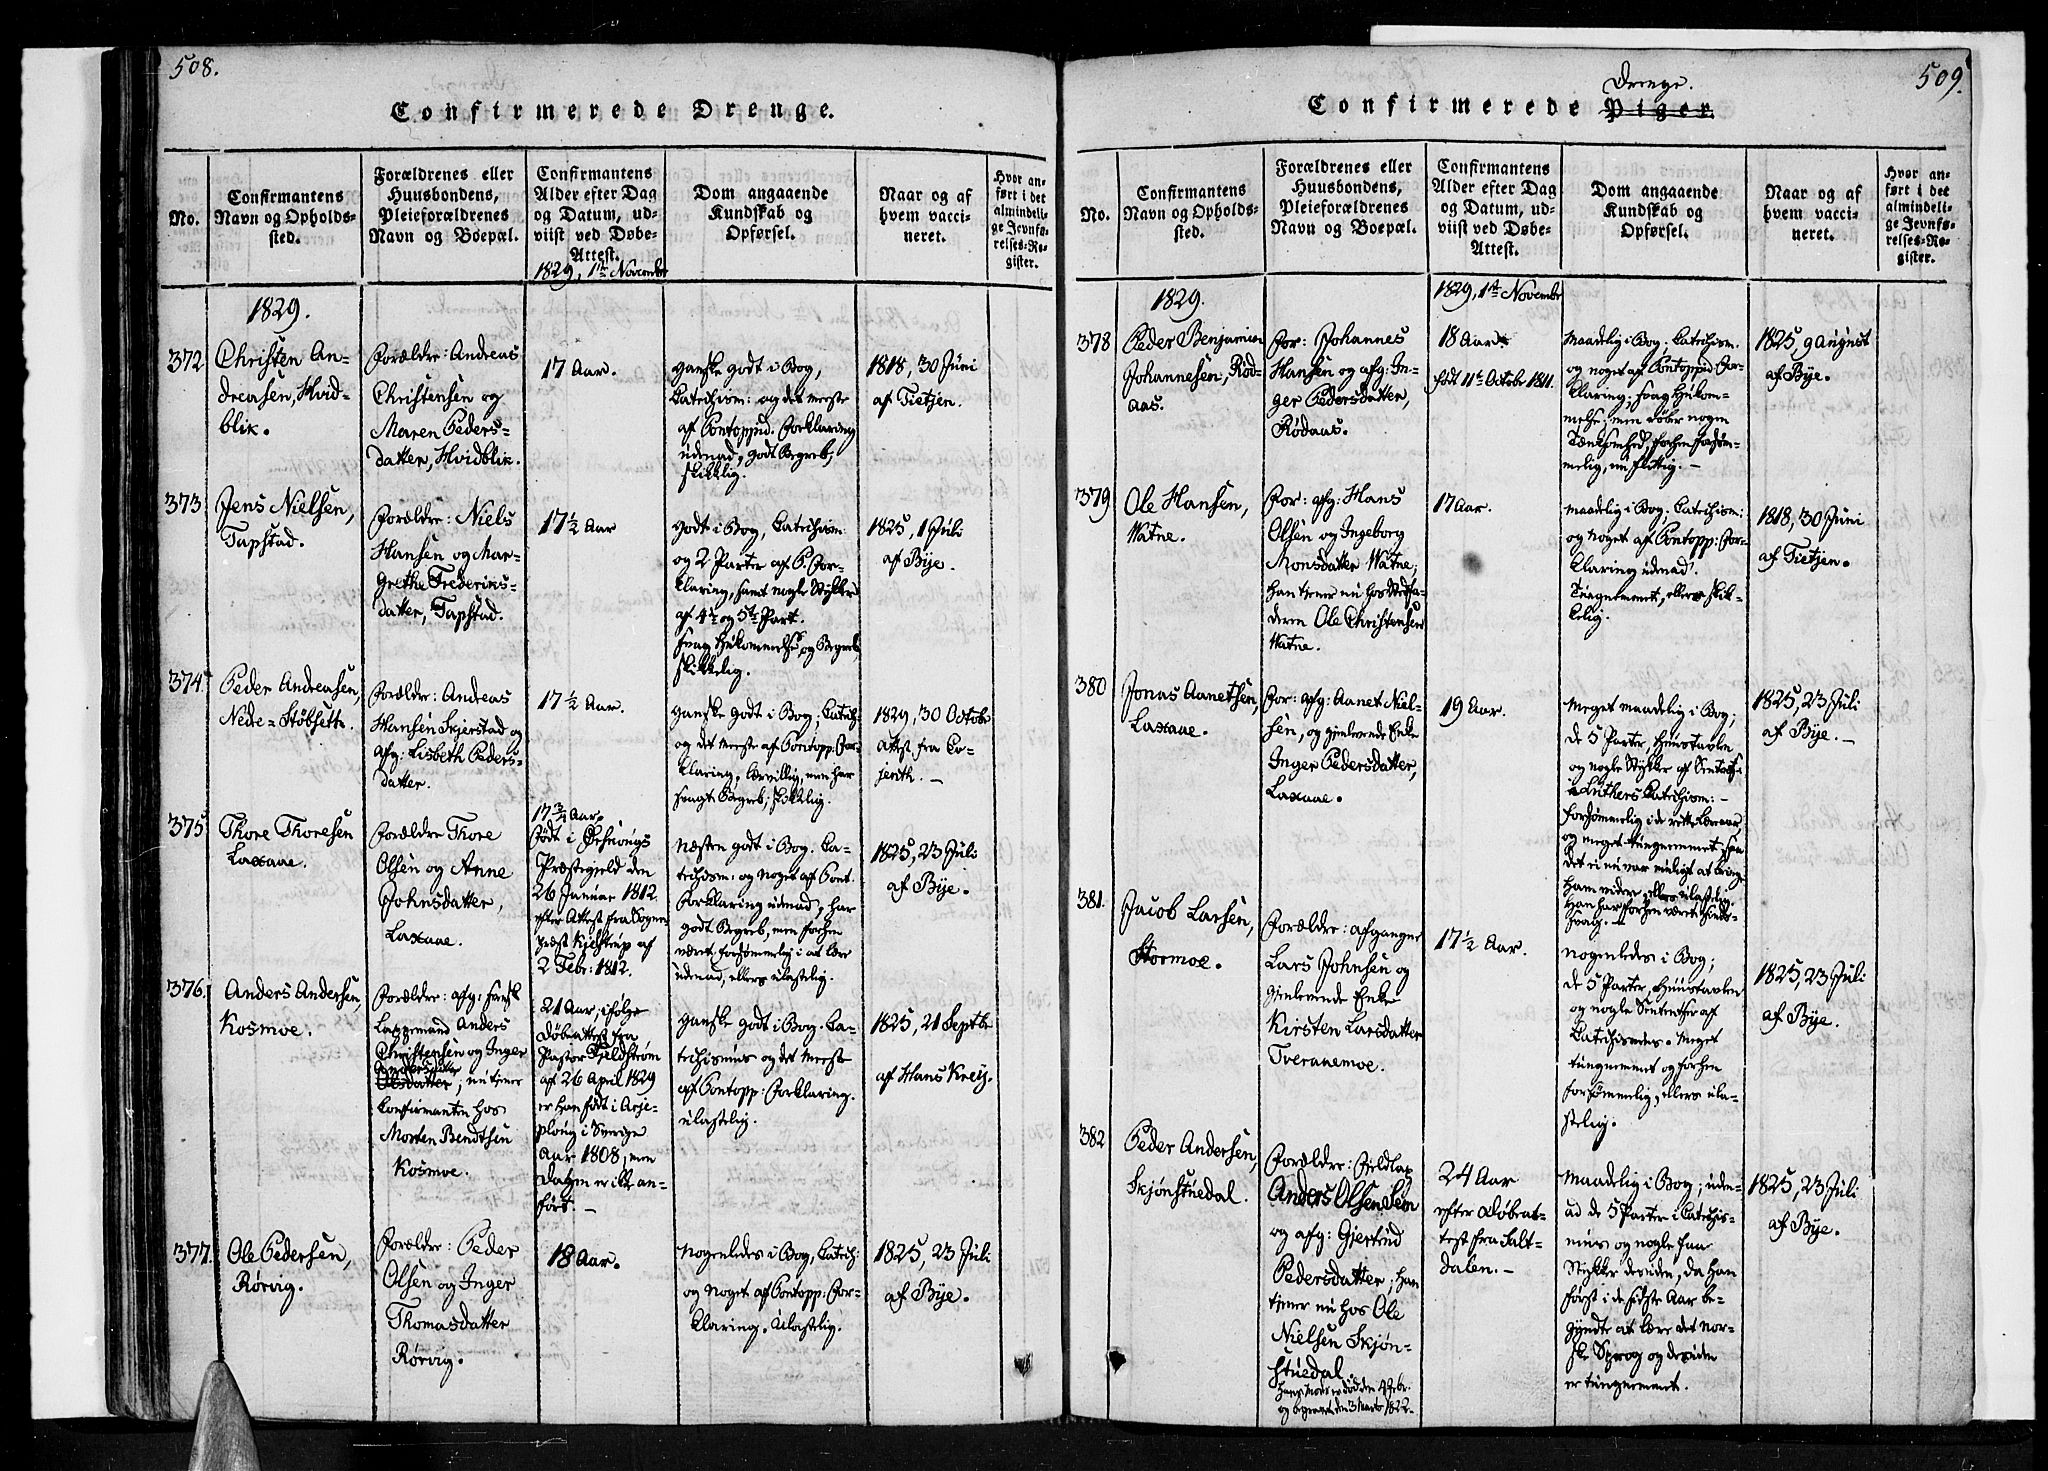 508.
Confirmerede Drenge.
No.
Confirmantens
Navn og Opholds-
sted.
Forældrenes eller
Huusbondens,
Pleieforældrenes
Navn og Boepæl.
Confirmantens
Alder efter Dag
og Datum, ud-
viist ved Døbe-
Attest.
Dom angaaende
Kundskab og
Opførsel.
Naar og af
hvem vacci-
neret.
Hvor an-
ført i det
almindeli-
ge Jevnfø-
relses-Re-
gister.
1829, 1te November
1829.
372
Christen An-
dreasen, Hvid-
blik.
Forældre: Andreas
Christensen og
Maren Peders-
datter, Hvidblik.
17 Aar.
Ganske godt i Bog,
Catechism: og det meeste
af Pontoppid. Forklaring
udenad, godt Begreb,
skikkelig.
1818, 30 Juni
af Tietjen.
373
Jens Nielsen,
Tapstad.
Forældre: Niels
Hansen og Mar-
grethe Frederiks-
datter, Tapstad.
17½ Aar
Godt i Bog, Catechism:
og 2 Parter af P. For-
klaring, samt nogle Stykker
af 4de og 5te Part.
svag Hukommelse og Begreb,
skikkelig.
1825, 1 Juli
af Bye.
374
Peder Andreasen,
Nede=Støbsett.
Forældre: Andreas
Hansen Skjerstad og
afg: Lisbeth Peders-
datter.
17½ Aar.
Ganske godt i Bog; Catech:
og det meeste af Pontopp: For-
klaring, men har
svagt Begreb; skikkelig.
1829, 30 Octobr
Attest fra
375
Thore Thoresen
Laxaae.
Forældre Thore
Olsen og Anne
Johnsdatter,
Laxaae.
17¾ Aar,
født i
Præstegjeld den
26 Januar 1812
efter Attest fra Sogne-
præst Kjelstrup af
2 Febr: 1812.
Næsten godt i Bog. Ca-
techism: og noget af Pont.
Forklaring udenad, har
godt Begreb, men forhen
været forsømmelig i at lære
udenad, ellers ulastelig.
1825, 23 Juli
af Bye.
376
Anders Andersen,
Kosmoe.
Forældre: afg: svensk
Lappemand Anders
Christensen og Inger
Andersdatter
Olsdatter; nu tjener
Confirmanten hos
Morten Bendtsen
Kosmoe.
21 Aar, ifølge
Døbeattest fra
Pastor Fjeldstrøm
af 26 April 1829
er han født i Arje-
ploug i Sverige
Aar 1808, men
Dagen er ikke an-
ført. —
Ganske godt i Bog. Ca-
techismus og det meeste
af Pontopp: Forklaring.
ulastelig.
1825, 21 Septbr
af Hans Krey.
377.
Ole Pedersen,
Rørvig.
Forældre: Peder
Olsen og Inger
Thomasdatter
Rørvig.
18 Aar.
Nogenledes i Bog, Catech:
og noget af Pontopp: For-
klaring. Ulastelig.
1825, 23 Juli
af Bye.
509.
Drenge.
Confirmerede Piger.
No.
Confirmantens
Navn og Opholds-
sted.
Forældrenes eller
Huusbondens,
Pleieforældrenes
Navn og Boepæl.
Confirmantens
Alder efter Dag
og Datum, ud-
viist ved Døbe-
Attest.
Dom angaaende
Kundskab og
Opførsel.
Naar og af
hvem vacci-
neret.
Hvor an-
ført i det
almindeli-
ge Jevnfø-
relses-Re-
gister.
1829.
1829, 1te Novembr
378
Peder Benjamin
Johannesen, Rød-
aas.
For: Johannes
Hansen og afg: In-
ger Pedersdatter,
Rødaas.
18 Aar
født 11te Octobr 1811.
Maadelig i Bog, Catechism.
og noget af Pontoppid. For-
klaring; svag Hukom-
melse; men røber nogen
Tænksomhed, forhen forsøm-
melig, nu flittig. —
1825, 9 August
af Bye.
379
Ole Hansen,
Watne.
For: afg: Hans
Olsen og Ingeborg
Monsdatter Watne;
han tjener nu hos Stedfa-
deren Ole Christensen
Watne.
17 Aar.
Maadelig i Bog; Catechism:
og noget af Pontopp: For-
klaring udenad.
Tungnemmet, ellers skik-
kelig.
1818, 30 Juni
af Tietjen.
380
Jonas Aanetsen,
Laxaae.
For: afg: Aanet Niel-
sen, og gjenlevende Enke
Inger Pedersdatter,
Laxaae.
19 Aar.
Meget maadelig i Bog;
de 5 Parter, Huustavlen
og nogle Stykker af
i Luthers Catechism: —
forsømmelig i de rette Læreaar,
og meget tungnemmet, saa
det ei nu var mueligt at bringe
ham videre; ellers ulastelig.
Han har forhen været sinds-
svag. —
1825, 23 Juli
af Bye. —
381.
Jacob Larsen,
Stormoe.
Forældre: afgangne
Lars Johnsen og
gjenlevende Enke
Kirsten Larsdatter
Tveraaemoe.
17½ Aar.
Nogenledes i Bog;
de 5 Parter, Huustavlen
og nogle Sentenser af
Catechismus. Meget
tungnemmet og forhen
forsømmelig, ellers ula-
stelig.
1825, 23 Juli
af Bye.
382
Peder Andersen,
Skjønstuedal.
Forældre: Fjeldlap
Anders Olsen
og afg: Gjertrud
Pedersdatter; han
tjener nu hos Ole
Nielsen Skjøn-
stuedal
Hans Moder er død den Febr.
og begravet den 3 Marts 1822.
24 Aar
efter Døbeat-
test fra Salt-
dalen. —
Maadelig i Bog; uden-
ad de 5 Parter i Catechis-
mus og nogle faa
Stykker desuden, da han
først i de sidste Aar be-
gyndte at lære det nor-
ske Sprog og desuden
er tungnemmet.
1825, 23 Juli
af Bye.